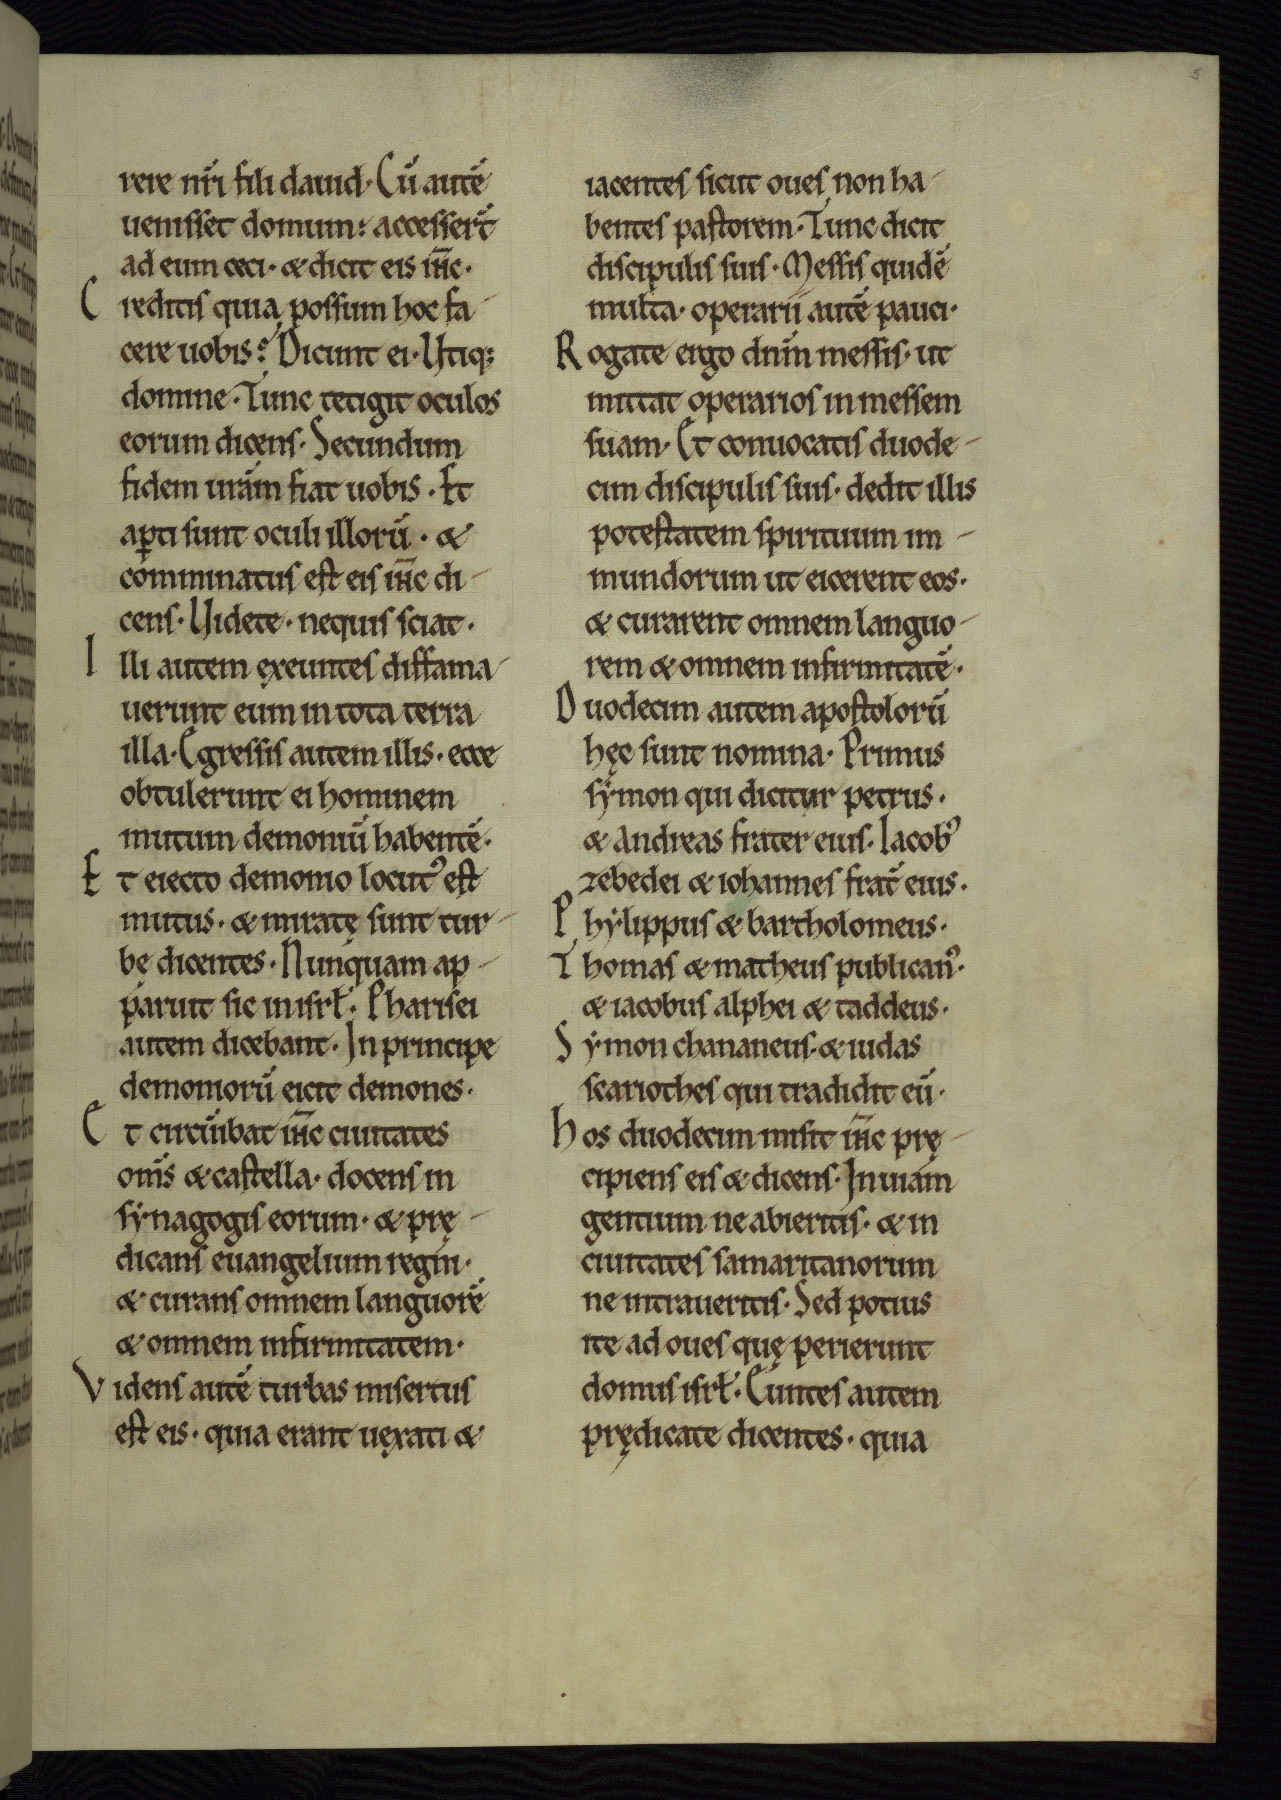 5
rere nr̄i fili dauid· Cū autē
uenisset domum: accessert̄
ad eum ceci· & dicit eis ih̄c·
Creditis quia possum hoc fa-
cere uobis? Dicunt ei· Utiq;
domine· Tunc tetigit oculos
eorum dicens· Secundum
fidem urām fiat uobis· Et
ap̱ti sunt oculi illorū· &
cominatus est eis ih̄c di-
cens· Uidete· nequis sciat·
Illi autem exeuntes diffama-
uerunt eum in tota terra
illa· Egressis autem illis· ecce
obtulerunt ei hominem
mutum demoniū habentē·
Et eiecto demonio locut᾽ est
mutus· & miratę sunt tur-
bę dicentes· Nunquam ap-
paruit sic in isrł· Pharisei
autem dicebant· In principe
demoniorū eicit demones·
Et circūibat ih̄c ciuitates
om̄s & castella· docens in
sẏnagogis eorum· & prę-
dicans euangelium regni·
& curans omnem languorē
& omnem infirmitatem·
Videns autē turbas misertus
est eis· quia erant uexati &
iacentes sicut oues non ha-
bentes pastorem· Tunc dicit
discipulis suis· Messis quidē
multa· operarii autē pauci·
Rogate ergo dnm̄ messis· ut
mittat operarios in messem
suam· Et conuocatis duode-
cim discipulis suis· dedit illis
potestatem spirituum im-
mundorum ut eicerent eos·
& curarent omnem languo-
rem & omnem infirmitatē·
Duodecim autem apostolorū
hęc sunt nomina· Primus
sẏmon qui dicitur petrus·
& andreas frater eius· Iacob᾽
zebedei & iohannes frat̄ eius·
Phẏlippus & bartholomeus·
Thomas & matheus publican᾽·
& iacobus alphei & taddeus·
Sẏmon chananeus· & iudas
scariothes qui tradidit eū·
Hos duodecim misit ih̄c prę-
cipiens eis & dicens· In uiam
gentium ne abieritis· & in
ciuitates samaritanorum
ne intraueritis· Sed potius
ite ad oues quę perierunt
domus isrł· Euntes autem
prędicate dicentes· quia